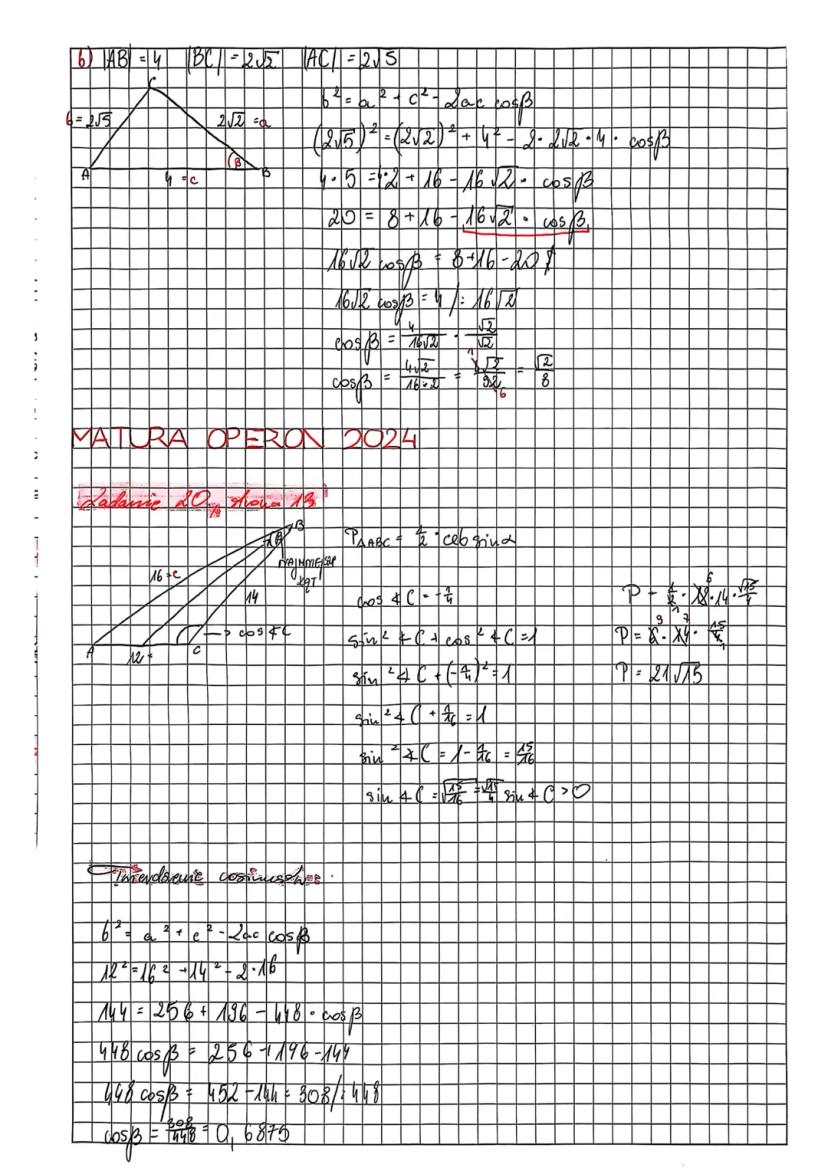 b) |AB| = 4 |BC| = 2√2 |AC| = 2√5
C
b = 2√5 2√2 = a
β
A 4 = c B
b² = a² + c² - 2ac cosβ
(2√5)² = (2√2)² + 4² - 2·2√2·4· cosβ
4·5 = 4·2 + 16 - 16√2 · cosβ
20 = 8 + 16 - 16√2 · cosβ
16√2 cosβ = 8+16-20
16√2 cosβ = 4 /: 16√2
cosβ = 4/16√2 · √2/√2
cosβ = 4√2/16·2 = 4√2/32 = √2/8
MATURA OPERON 2024
Zadanie 20, strona 13
B
NAJMNIEJSZY
KĄT
16 = c
14
→ cos∢C
A 12 = C
P△ABC = 1/2 ·
cos∢C = -1/4
sin²∢C + cos²∢C = 1
sin²∢C + (-1/4)² = 1
sin²∢C + 1/16 = 1
sin²∢C = 1 - 1/16 = 15/16
sin∢C = √15/16 = √15/4 sin∢C > 0
P = 1/2 · 12 · 14 · √15/4
P = 6 · 14 ·
P = 21√15
Twierdzenie cosinusów
b² = a² + c² - 2ac cosβ
12² = 16² + 14² - 2·16
144 = 256 + 196 - 448 · cosβ
448 cosβ = 256 + 196 - 144
448 cosβ = 452 - 144 = 308 /: 448
cosβ = 308/448 = 0,6875